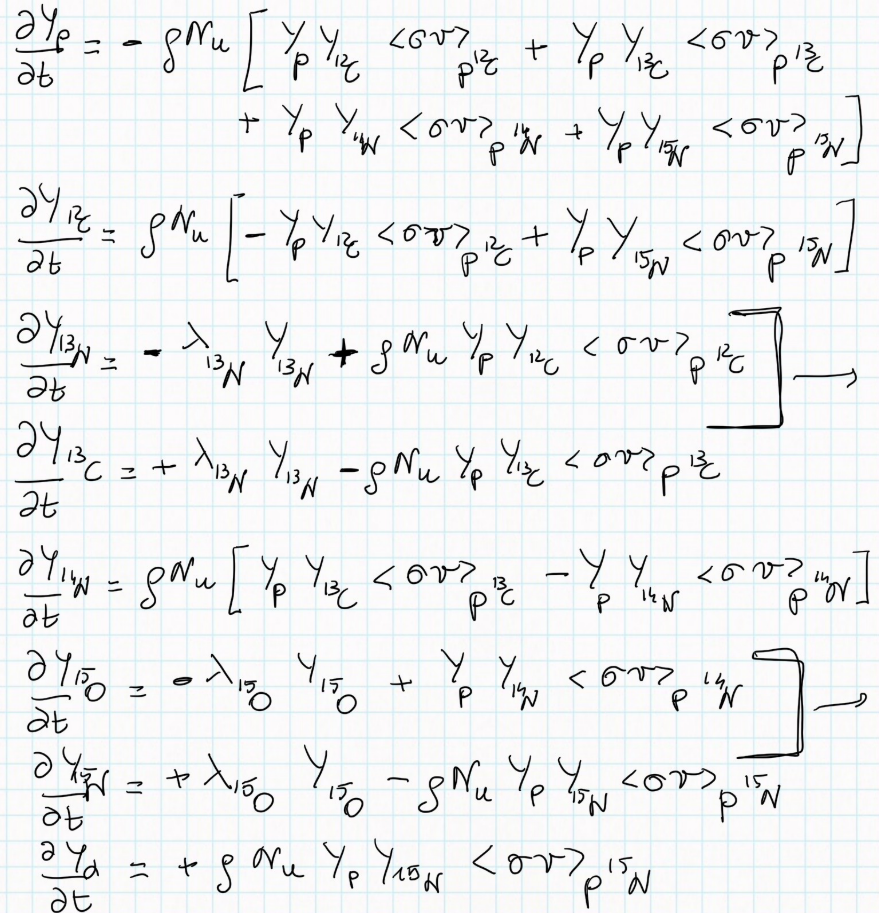 ∂Y_p/∂t = - ρ N_u [ Y_p Y_¹²C <σv>_p¹²C + Y_p Y_¹³C <σv>_p¹³C
+ Y_p Y_¹⁴N <σv>_p¹⁴N + Y_p Y_¹⁵N <σv>_p¹⁵N ]
∂Y_¹²C/∂t = ρ N_u [ - Y_p Y_¹²C <σv>_p¹²C + Y_p Y_¹⁵N <σv>_p¹⁵N ]
∂Y_¹³N/∂t = - λ_¹³N Y_¹³N + ρ N_u Y_p Y_¹²C <σv>_p¹²C ] →
∂Y_¹³C/∂t = + λ_¹³N Y_¹³N - ρ N_u Y_p Y_¹³C <σv>_p¹³C
∂Y_¹⁴N/∂t = ρ N_u [ Y_p Y_¹³C <σv>_p¹³C - Y_p Y_¹⁴N <σv>_p¹⁴N ]
∂Y_¹⁵O/∂t = - λ_¹⁵O Y_¹⁵O + Y_p Y_¹⁴N <σv>_p¹⁴N ] →
∂Y_¹⁵N/∂t = + λ_¹⁵O Y_¹⁵O - ρ N_u Y_p Y_¹⁵N <σv>_p¹⁵N
∂Y_α/∂t = + ρ N_u Y_p Y_¹⁵N <σv>_p¹⁵N